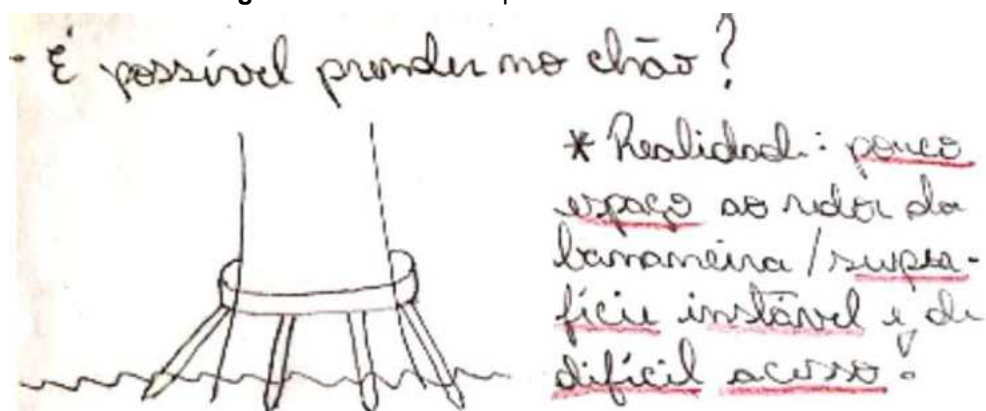 - É possível prender no chão?
* Realidade: pouco
espaço ao redor da
bananeira / super-
fície instável e de
difícil acesso.